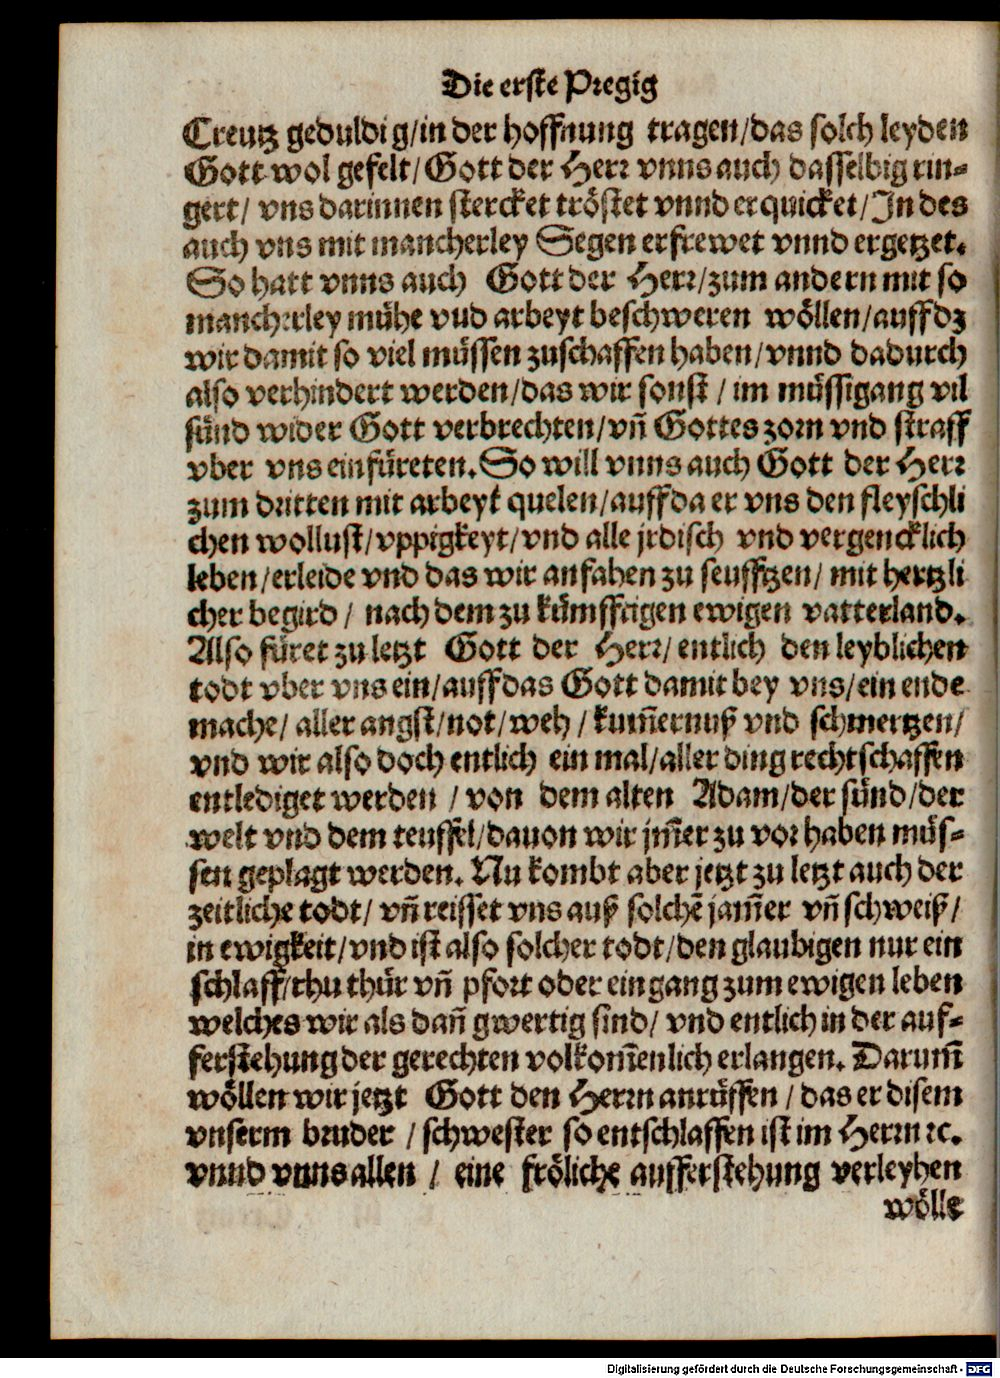 Die erste Pregig
Creutz geduldig/in der hoffnung tragen/das solch leyden
Gott wol gefelt/Gott der Herr vnns auch dasselbig rin-
gert/ vns darinnen stercket tröstet vnnd erquicket/In des
auch vns mit mancherley Segen erfrewet vnnd ergetzet.
So hatt vnns auch Gott der Herr/zum andern mit so
mancherley mühe vnd arbeyt beschweren wöllen/auffdz
wir damit so viel müssen zuschaffen haben/vnnd dadurch
also verhindert werden/das wir sonst / im müssigang vil
sünd wider Gott verbrechten/vñ Gottes zorn vnd straff
vber vns einfüreten.So will vnns auch Gott der Herr
zum dritten mit arbeyt quelen/auffda er vns den fleyschli
chen wollust/vppigkeyt/vnd alle jrdisch vnd vergencklich
leben/erleide vnd das wir anfahen zu seufftzen/ mit hertzli
cher begird / nach dem zu kümfftigen ewigen vatterland.
Also füret zu letzt Gott der Herr/ entlich den leyblichen
todt vber vns ein/auffdas Gott damit bey vns/ein ende
mache/ aller angst/not/weh / kum̃ernuß vnd schmertzen/
vnd wir also doch entlich ein mal/aller ding rechtschaffen
entlediget werden / von dem alten Adam/der sünd/der
welt vnd dem teuffel/dauon wir jm̃er zu vor haben müs-
sen geplagt werden. Nu kombt aber jetzt zu letzt auch der
zeitliche todt/ vñ reisset vns auß solchẽ jam̃er vñ schweiß/
in ewigkeit/vnd ist also solcher todt/den glaubigen nur ein
schlaff/thu thür vñ pfort oder eingang zum ewigen leben
welches wir als dañ gwertig sind/ vnd entlich in der auf-
ferstehung der gerechten volkom̃enlich erlangen. Darum̃
wöllen wir jetzt Gott den Herrn anrüffen / das er disem
vnserm bruder / schwester so entschlaffen ist im Herrn ꝛc.
vnnd vnns allen / eine fröliche aufferstehung verleyhen
wölle
Digitalisierung gefördert durch die Deutsche Forschungsgemeinschaft - DFG